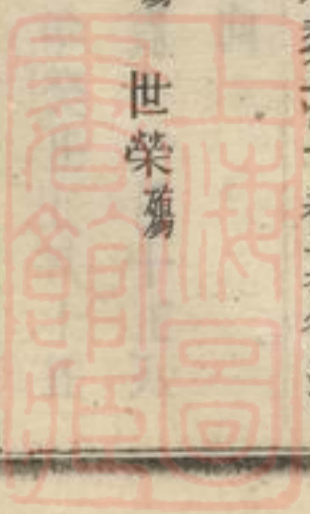 世榮殤
上海圖
書館藏